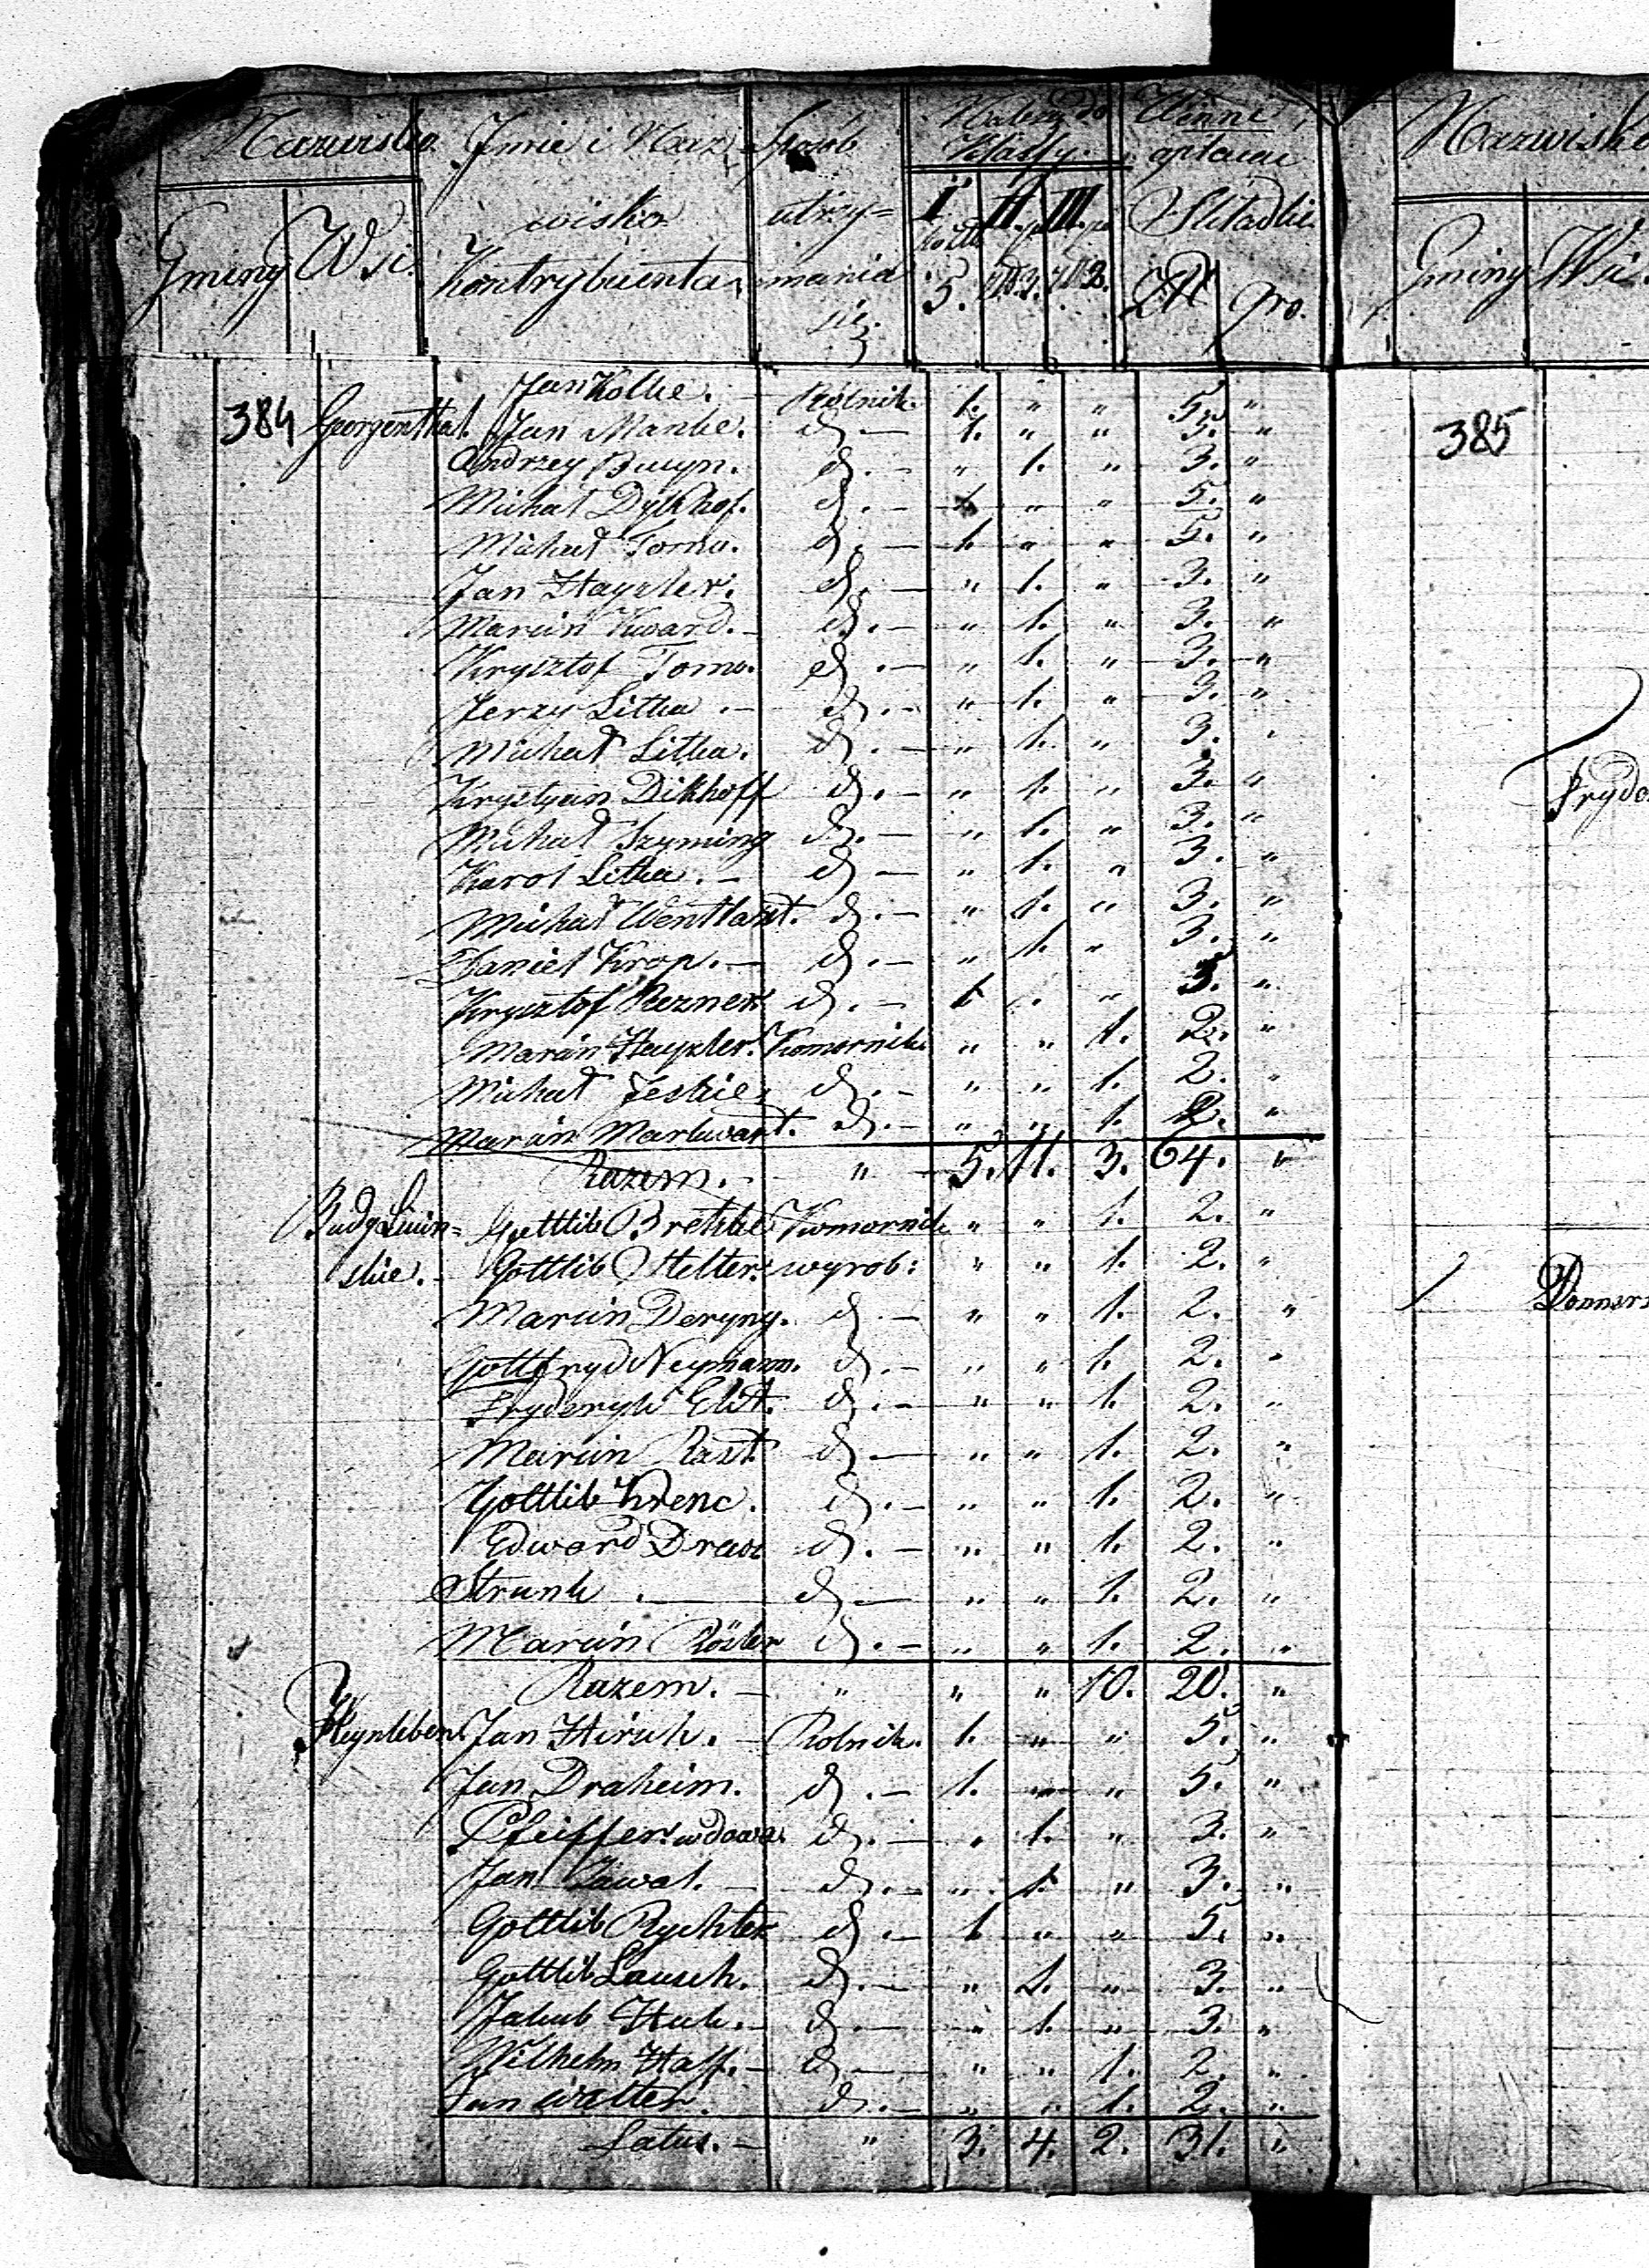 Nazwisko Imie i Naz Sposób Należy do Winni
Klassy opłacac
wiska utrzy= I II. III. Składki
Gminy Wsi. Kontrybuenta mania 5. 3. 2. Zł gro.
się.
Nazwisko
Gminy Wsi.
Jan Kolke. Rolnik. 1. " " 5. "
384 Georgenthal. Jan Manke. d. — 1. " " 5. "
Andrzey d. — " 1. " 3. "
Michał Dykhof. d. — 1. " " 5. "
Michał Tomo. d. — 1. " " 5. "
Jan Hayzler. d. — " 1. " 3. "
Marcin Kward. d. — " 1. " 3. "
Krysztof Tomo. d. — " 1. " 3. "
Jerzy Litka. d. — " 1. " 3. "
Michał Litka. d. — " 1. " 3. "
Krystyan Dikhoff d. — " 1. " 3. "
Michał Szyming d. — " 1. " 3. "
Karol Litka. d. — " 1. " 3. "
Michał Wentlant. d. — " 1. " 3. "
Daniel Krop. d. — " 1. " 3. "
Krysztof Rezner d. — 1 " " 5. "
Marcin Hayzler. Komornik " " 1. 2. "
Michał Jeskie. d. — " " 1. 2. "
Marcin Markwart. d. — " " 1. 2. "
Razem. " 5. 11. 3. 64. "
Budy Gottlib Bretzke Komornik " " 1. 2. "
skie. Gottlib Stelter. wyrob: " " 1. 2. "
Marcin Deryng. d. — " " 1. 2. "
Gottfryd Neymann. d. — " " 1. 2. "
Fryderyk Elit. d. — " " 1. 2. "
Marcin Rast d. — " " 1. 2. "
Gottlib Krenc. d. — " " 1. 2. "
Edward Drews d. — " " 1. 2. "
Strunk d. — " " 1. 2. "
Marcin Rösler d. — " " 1. 2. "
Razem. " " " 10. 20. "
Heynleben. Jan Hirsch. Rolnik. 1. " " 5. "
Jan Draheim. d. — 1. " " 5. "
Pfeiffer wdowa. d. — " 1. " 3. "
Jan d. — " 1. " 3. "
Gottlib Rychter d. — 1 " " 5. "
Gottlib Lausch. d. — " 1. " 3. "
Jakub Huk. d. — " 1. " 3. "
Wilhelm Haff. d. — " " 1. 2. "
Jan Walter. d. — " " 1. 2. "
Latus. " 3. 4. 2. 31. "
385